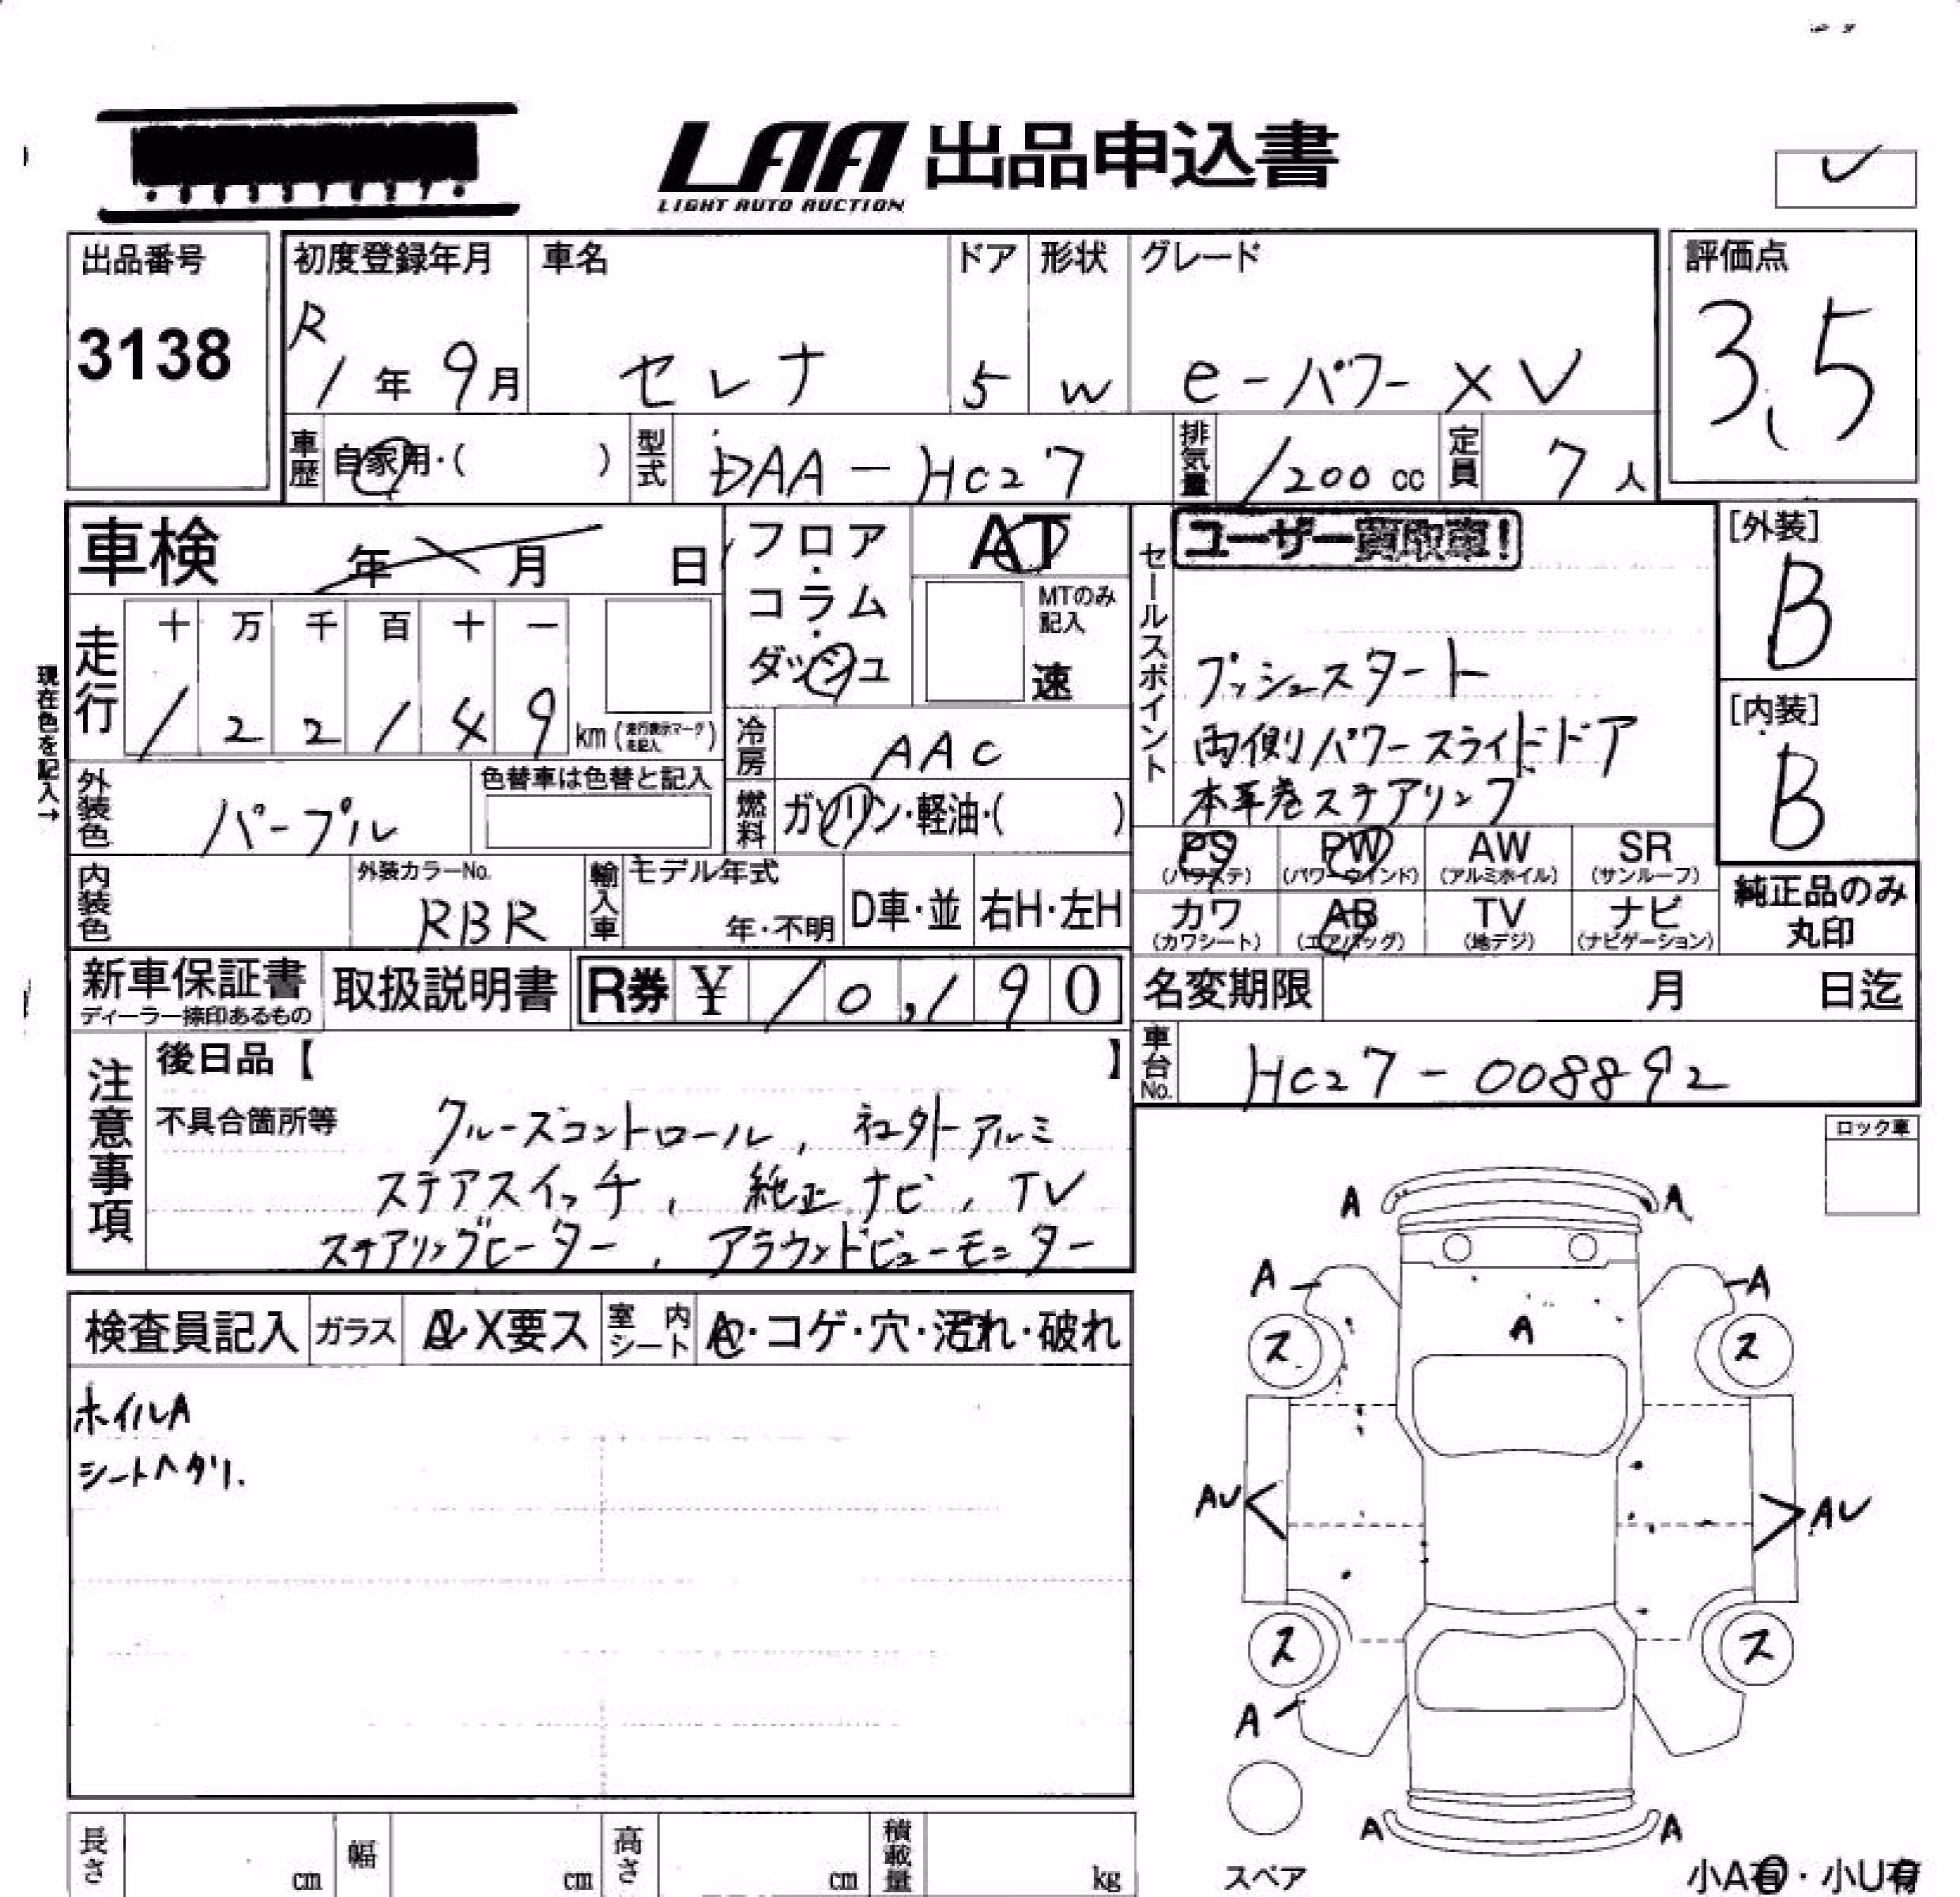 LAA 出品申込書
LIGHT AUTO AUCTION
出品番号
3138
初度登録年月
R
1年 9月
車名
セレナ
ドア
5
形状
W
グレード
e-パワー XV
評価点
3.5
車歴
自家用・( )
型式
DAA-HC27
排気量
1200 cc
定員
7 人
車検
年 月 日
フロア・コラム・ダッシュ
AT
MTのみ記入
速
セールスポイント
ユーザー買取車!
プッシュスタート
両側パワースライドドア
本革巻ステアリング
[外装]
B
[内装]
B
現在色を記入→
走行
十 万 千 百 十 一
1 2 2 1 4 9
km (走行表示マークを記入)
冷房
AAC
外装色
パープル
色替車は色替と記入
燃料
ガソリン・軽油・( )
PS (パワステ)
PW (パワーウインド)
AW (アルミホイル)
SR (サンルーフ)
カワ (カワシート)
AB (エアバッグ)
TV (地デジ)
ナビ (ナビゲーション)
純正品のみ丸印
内装色
外装カラーNo.
RBR
輸入車
モデル年式
年・不明
D車・並
右H・左H
新車保証書
ディーラー捺印あるもの
取扱説明書
R券 ¥ 10,190
名変期限
月 日迄
車台No.
HC27-008892
注意事項
後日品【 】
不具合箇所等
クルーズコントロール, 社外アルミ
ステアスイッチ, 純正ナビ, TV
ステアリングヒーター, アラウンドビューモニター
ロック車
検査員記入
ガラス
X要ス
室内シート
A・コゲ・穴・汚れ・破れ
ホイルA
シートヘタリ.
A A
A A
A
ス ス
AU AU
ス ス
A
A A
スペア
小A有・小U有
長さ cm
幅 cm
高さ cm
積載量 kg